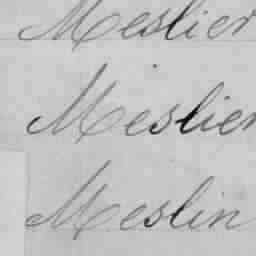 Meslier
Meslier
Meslin